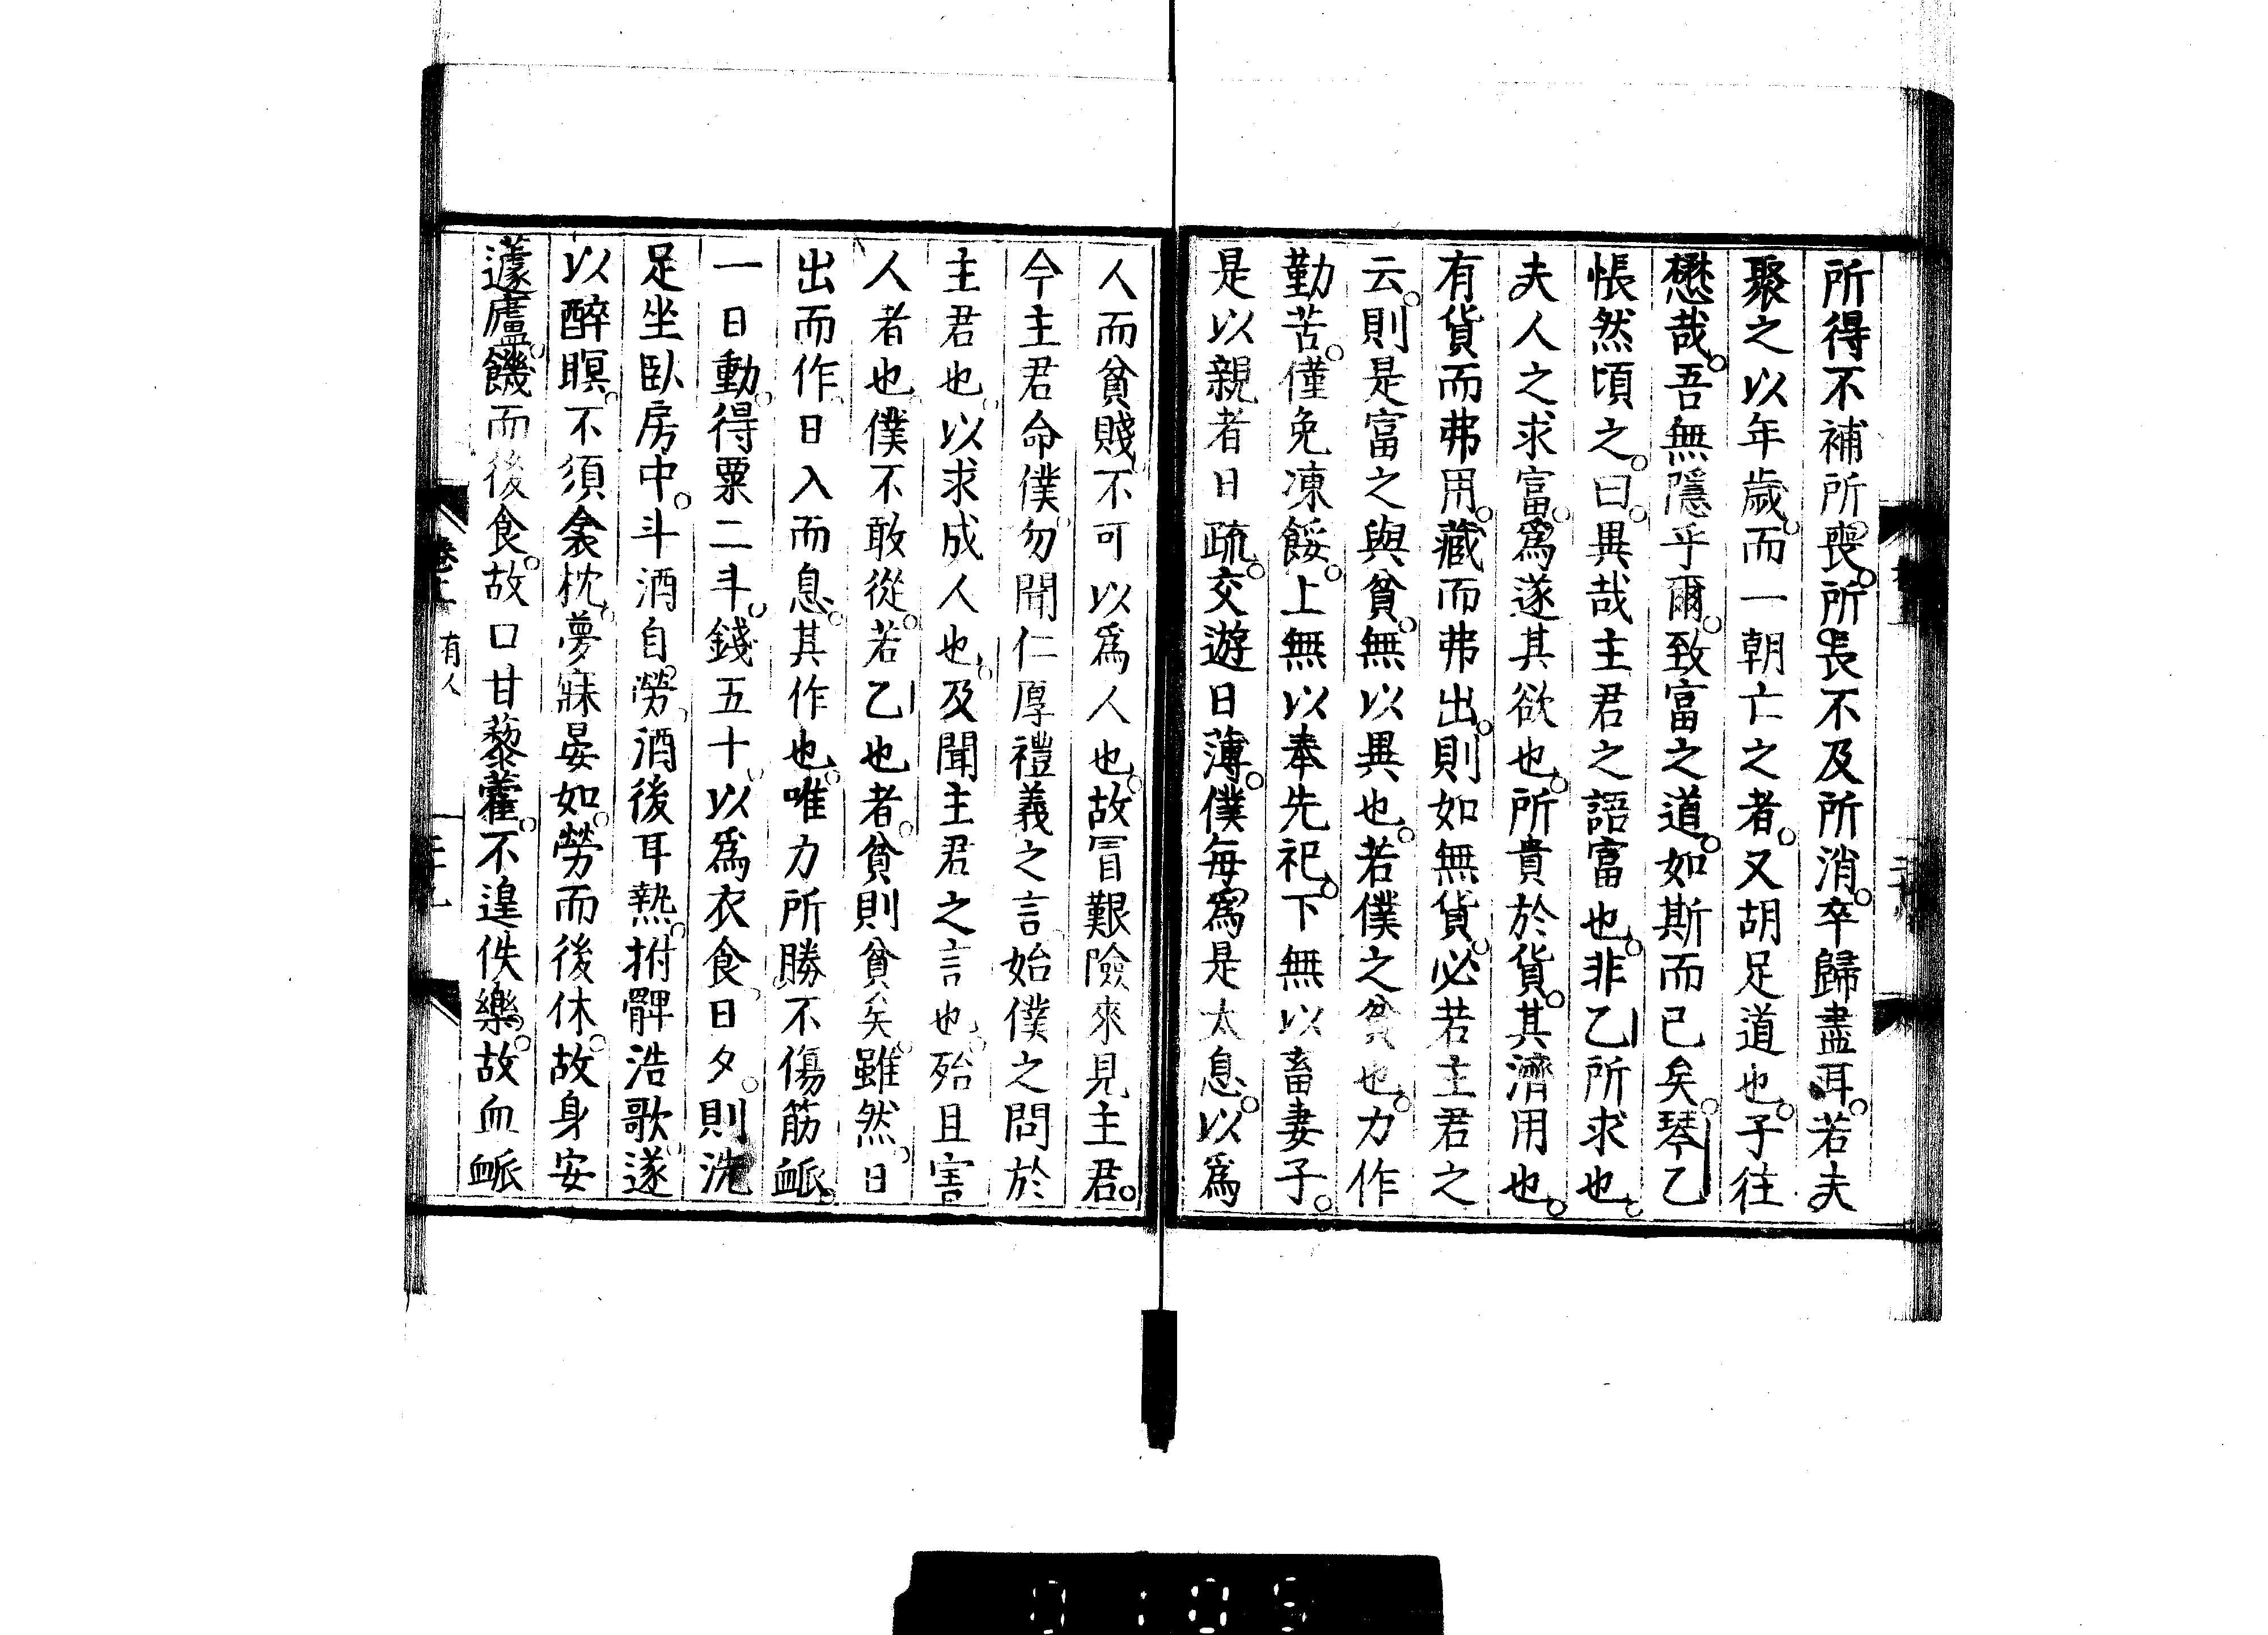 所得不補所喪。所長不及所消。卒歸盡耳。若夫
聚之以年歲。而一朝亡之者。又胡足道也。子往
懋哉。吾無隱乎爾。致富之道。如斯而已矣。琴乙
悵然頃之。曰。異哉主君之語富也。非乙所求也。
夫人之求富。爲遂其欲也。所貴於貨。其濟用也。
有貨而弗用。藏而弗出。則如無貨。必若主君之
云。則是富之與貧。無以異也。若僕之貧也。力作
勤苦。僅免凍餒。上無以奉先祀。下無以畜妻子。
是以親者日疏。交遊日薄。僕每爲是太息。以爲
人而貧賤。不可以爲人也。故冒艱險來見主君。
今主君命僕。勿聞仁厚禮義之言。始僕之問於
主君也。以求成人也。及聞主君之言也。殆且害
人者也。僕不敢從。若乙也者。貧則貧矣。雖然。日
出而作。日入而息。其作也。唯力所勝。不傷筋衇。
一日動。得粟二斗。錢五十。以爲衣食。日夕。則洗
足坐臥房中。斗酒自勞。酒後耳熱。拊髀浩歌。遂
以醉瞑。不須衾枕。夢寐晏如。勞而後休。故身安
蘧廬。饑而後食。故口甘藜藿。不遑佚樂。故血衇
有人